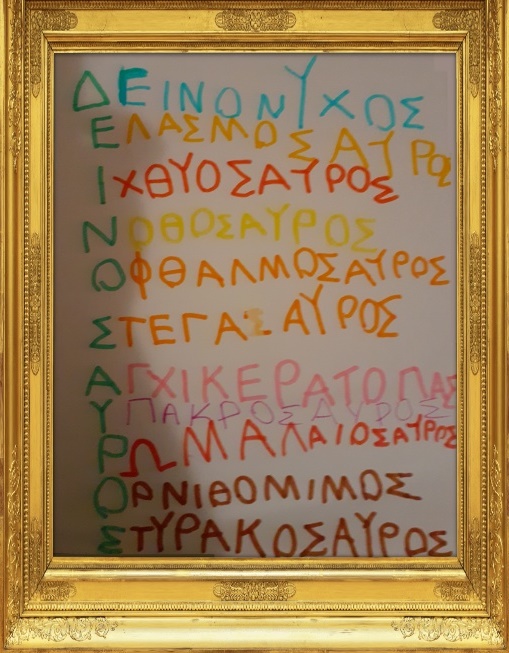 ΔΕΙΝΟΝΥΧΟΣ
ΕΛΑΣΜΟΣΑΥΡΟΣ
ΙΧΘΥΟΣΑΥΡΟΣ
ΝΟΘΟΣΑΥΡΟΣ
ΟΦΘΑΛΜΟΣΑΥΡΟΣ
ΣΤΕΓΑΣΑΥΡΟΣ
ΑΓΧΙΚΕΡΑΤΟΠΑΣ
ΥΠΑΚΡΟΣΑΥΡΟΣ
ΡΩΜΑΛΑΙΟΣΑΥΡΟΣ
ΟΡΝΙΘΟΜΙΜΟΣ
ΣΤΥΡΑΚΟΣΑΥΡΟΣ